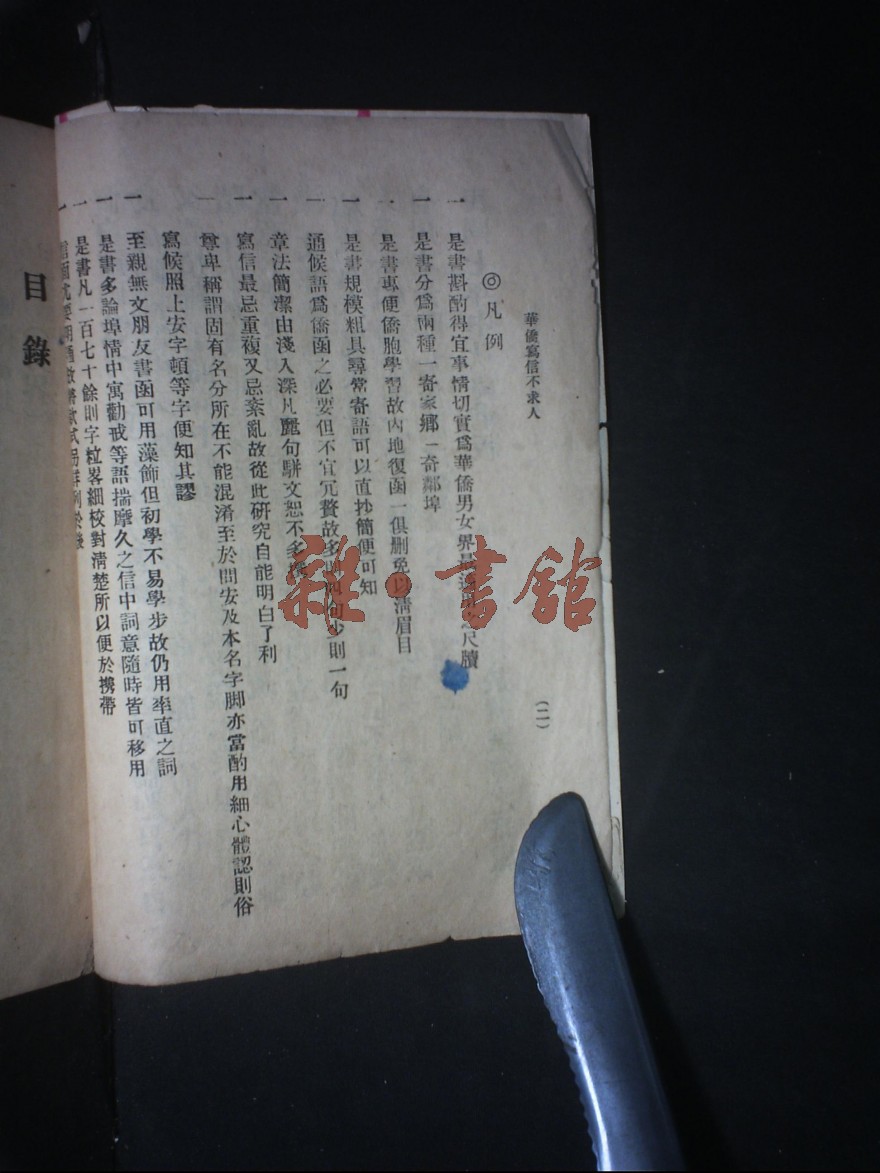 華僑寫信不求人
(二)
◎凡例
一 是書斟酌得宜事情切實爲華僑男女界最 尺牘
一 是書分爲兩種一寄家鄉一寄鄰埠
一 是書專便僑胞學習故內地復函一俱刪免以淸眉目
一 是書規模粗具尋常寄語可以直抄簡便可知
一 通候語爲僑函之必要但不宜冗贅故多 句少則一句
一 章法簡潔由淺入深凡麗句駢文恕不多
一 寫信最忌重複又忌紊亂故從此研究自能明白了利
一 尊卑稱謂固有名分所在不能混淆至於問安及本名字脚亦當酌用細心體認則俗
寫候照上安字頓等字便知其謬
一 至親無文朋友書函可用藻飾但初學不易學步故仍用率直之詞
一 是書多論埠情中寓勸戒等語揣摩久之信中詞意隨時皆可移用
一 是書凡一百七十餘則字粒畧細校對淸楚所以便於携帶
一 信面
目錄
雜·書館